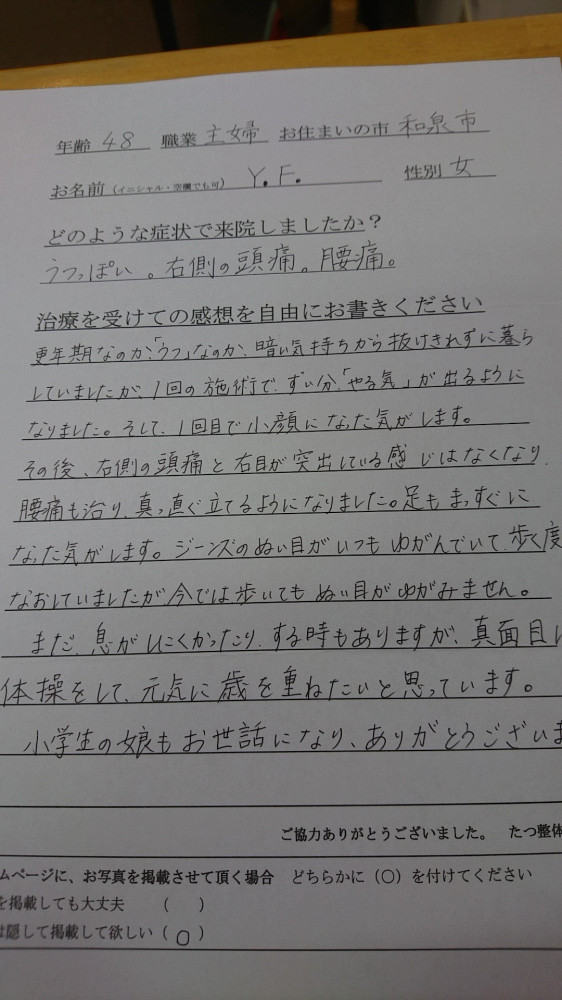 年齢 48 職業 主婦 お住まいの市 和泉市
お名前 (イニシャル・空欄でも可) Y.F. 性別 女
どのような症状で来院しましたか?
うつっぽい。右側の頭痛。腰痛。
治療を受けての感想を自由にお書きください
更年期なのか、「うつ」なのか、暗い気持ちから抜けきれずに暮ら
していましたが、1回の施術で、ずい分、「やる気」が出るように
なりました。そして、1回目で小顔になった気がします。
その後、右側の頭痛と右目が突出している感じはなくなり、
腰痛も治り、真っ直ぐ立てるようになりました。足もまっすぐに
なった気がします。ジーンズのぬい目がいつもゆがんでいて、歩く度
なおしていましたが今では歩いてもぬい目がゆがみません。
まだ、息がしにくかったり、する時もありますが、真面目に
体操をして、元気に歳を重ねたいと思っています。
小学生の娘もお世話になり、ありがとうございま
ご協力ありがとうございました。 たつ整体
ムページに、お写真を掲載させて頂く場合 どちらかに(○)を付けてください
を掲載しても大丈夫 ( )
は隠して掲載して欲しい (○)